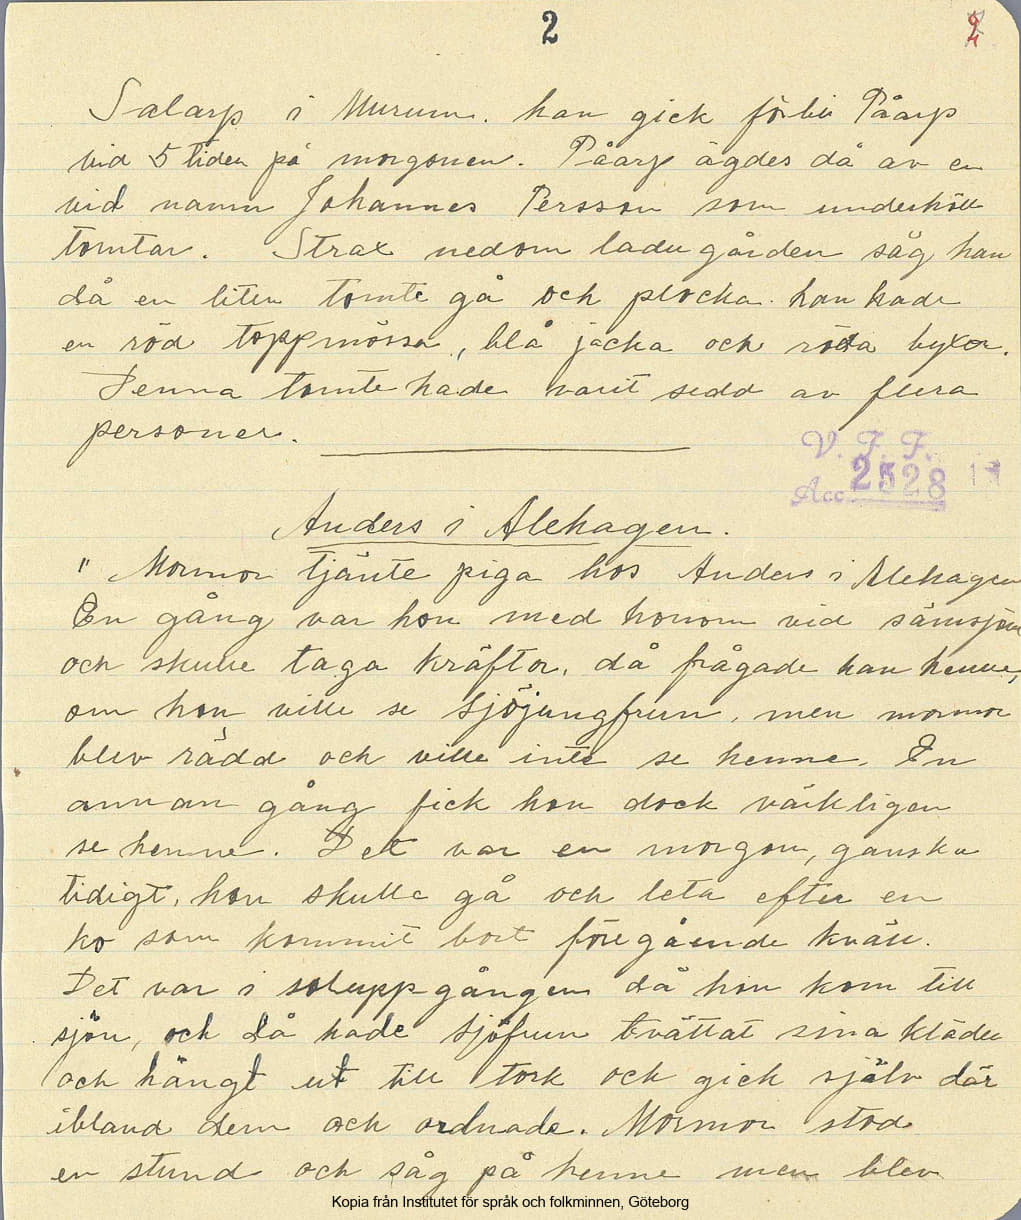 2
2
Salarp i Murum. han gick förbi Påarp
vid 5 tiden på morgonen. Påarp ägdes då av en
vid namn Johannes Persson som underhöll
tomtar. Strax nedom ladugården såg han
då en liten tomte gå och plocka. han hade
en röd toppmössa, blå jacka och röda byxor.
Denna tomte hade varit sedd av flera
personer.
V. F. F.
Acc 2528
Anders i Alehagen.
" Mormor tjänte piga hos Anders i Alehagen
En gång var hon med honom vid sämsjön
och skulle taga kräftor, då frågade han henne,
om hon ville se sjöjungfrun, men mormor
blev rädd och ville inte se henne. En
annan gång fick hon dock värkligen
se henne. Det var en morgon, ganska
tidigt, hon skulle gå och leta efter en
ko som kommit bort föregående kväll.
Det var i soluppgången då hon kom till
sjön, och då hade sjöfrun tvättat sina kläder
och hängt ut till tork och gick själv där
ibland dem och ordnade. Mormor stod
en stund och såg på henne men blev
Kopia från Institutet för språk och folkminnen, Göteborg